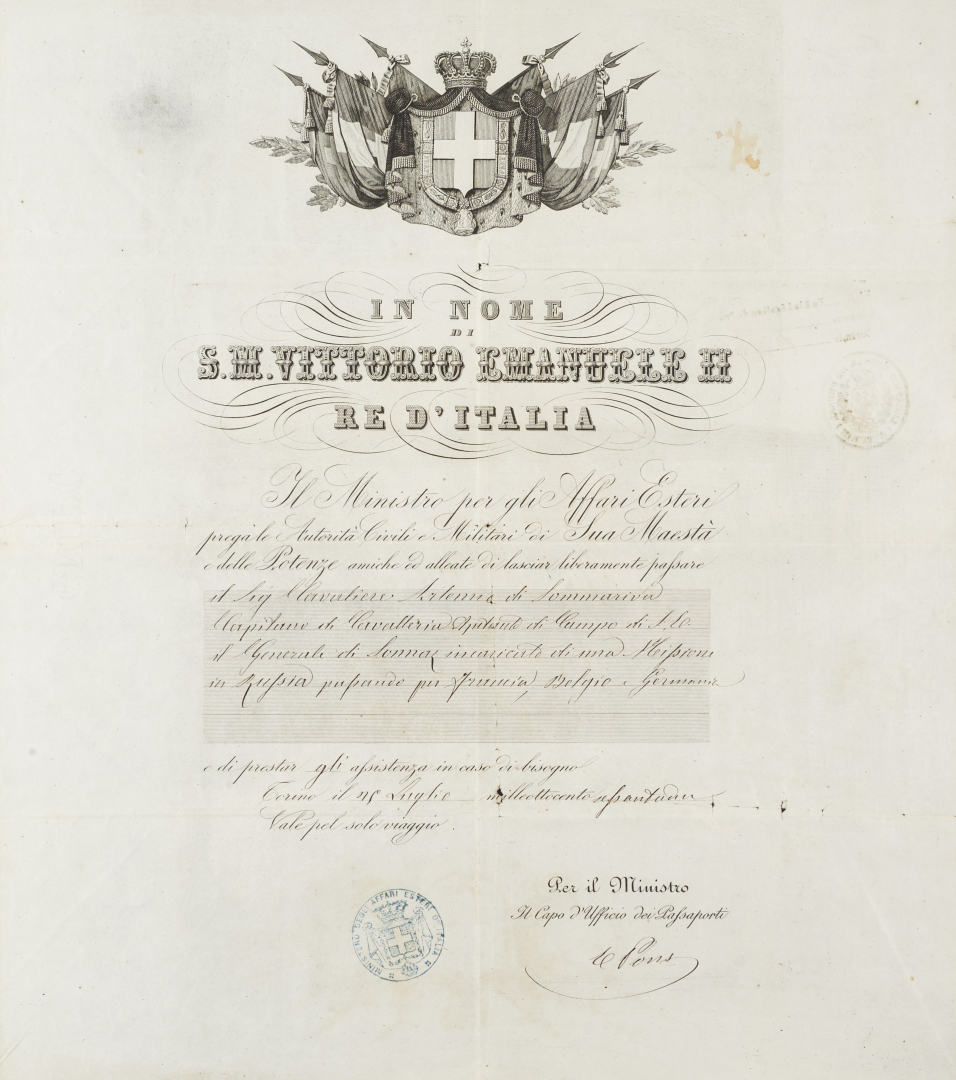 IN NOME
DI
S.M. VITTORIO EMANUELE II
RE D'ITALIA
Il Ministro per gli Affari Esteri
prega le Autorità Civili e Militari di Sua Maestà
e delle Potenze amiche ed alleate di lasciar liberamente passare
il Sig Cavaliere Artemio di Sommariva
Capitano di Cavalleria Ajutante di Campo di S. E.
il Generale di Sonnaz incaricato di una Missione
in Russia passando per Francia, Belgio e Germania
e di prestargli assistenza in caso di bisogno
Torino il Luglio milleottocento
Vale pel solo viaggio.
Per il Ministro
Il Capo d'Ufficio dei Passaporti
Pons
MINISTRO DEGLI AFFARI ESTERI D'ITALIA